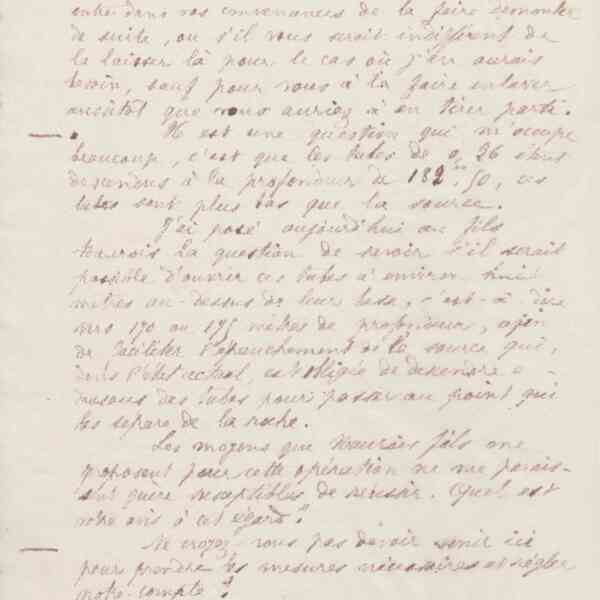 entrer dans vos convenances de la faire démonter
de suite, ou s'il vous serait indifférent de
la laisser là pour le cas où j'en aurais
besoin, sauf pour vous à la faire enlever
aussitôt que vous auriez à en tirer parti.
Il est une question qui m'occupe
beaucoup, c'est que les tubes de 0,26 étant
descendus à la profondeur de 182m.50, ces
tubes sont plus bas que la source.
J'ai posé aujourd'hui au fils
la question de savoir s'il serait
possible d'ouvrir ces tubes à environ huit
mètres au-dessus de leur base, c'est-à-dire
vers 170 ou 175 mètres de profondeur, afin
de faciliter l'épanchement de la source qui,
dans l'état actuel, est obligée de descendre
dessous des tubes pour passer au point qui
les sépare de la roche.
Les moyens que fils me
proposent pour cette opération ne me parais-
sent guère susceptibles de réussir. Quel est
votre avis à cet égard?
Ne croyez-vous pas devoir venir ici
pour prendre les mesures nécessaires et régler
notre compte?